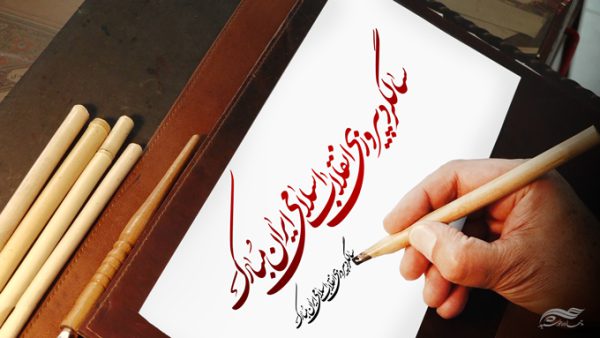 سالگرد پیروزی انقلاب اسلامی ایران مبارک
سالگرد پیروزی انقلاب اسلامی ایران مبارک